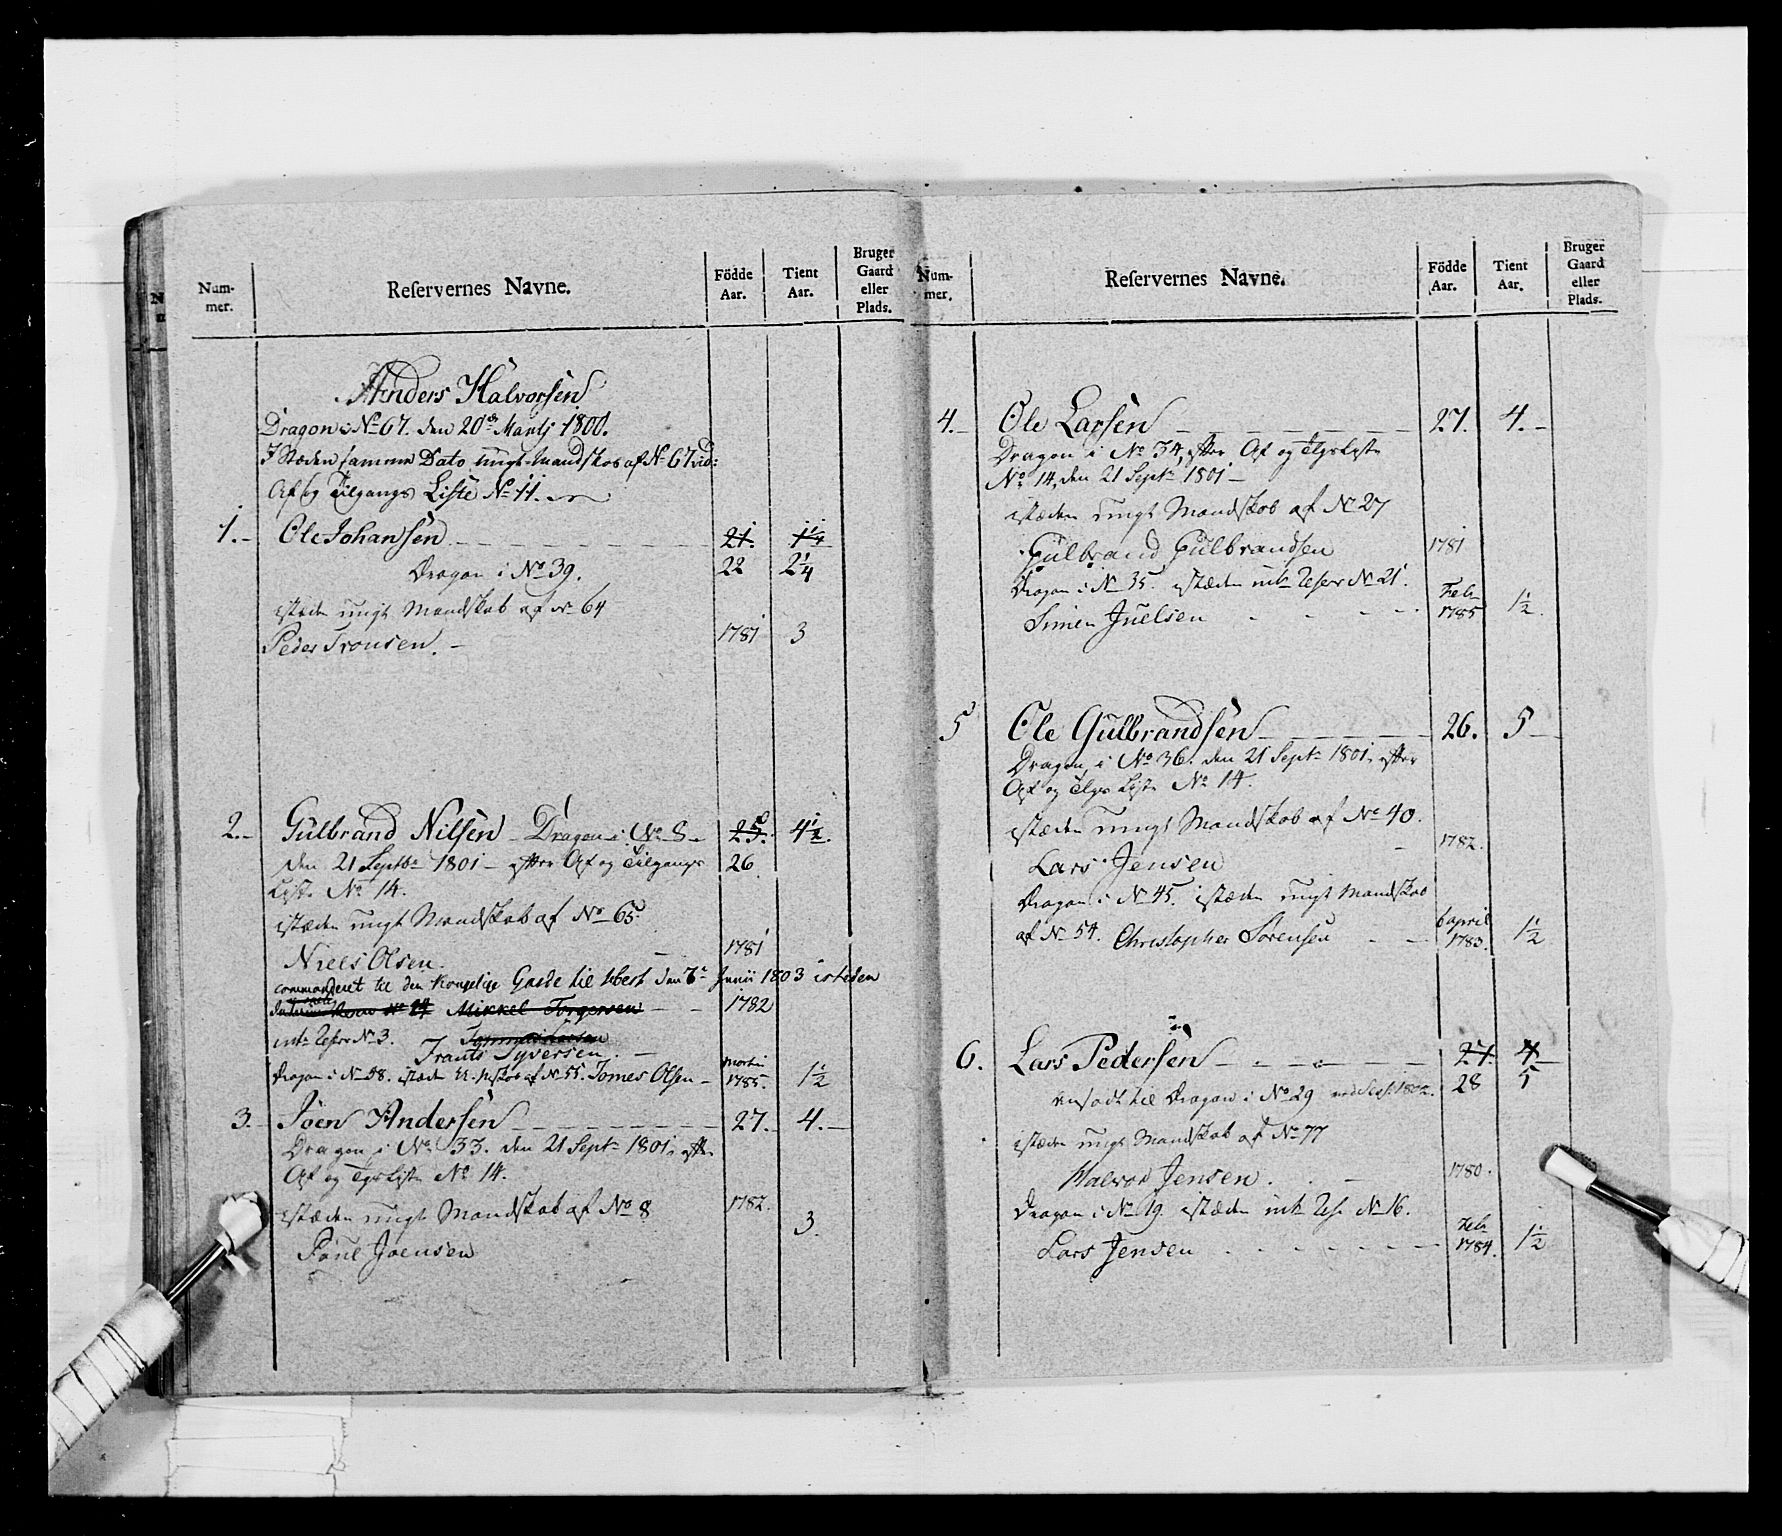 Num-
mer.
Reservernes Navne.
Födde
Aar.
Tient
Aar.
Bruger
Gaard
eller
Plads.
Anders Halvorsen
Dragon No 67. den 20de Martj 1800.
I Stæden samme Dato ungt Mandskab af No 67 vid:
Af og Tilgangs Liste No 11.
1. Ole Johansen 21. 1 1/4
Dragon i No 39. 22 2 1/4
istæden ungt Mandskab af No 64
Peder Tronsen. 1781 3
2. Gulbrand Nilsen Dragon i No 8 25. 4 1/2.
den 21 Septbr 1801 efter Af og Tilgangs 26
Liste No 14.
istæden ungt Mandskab af No 65
Niels Olsen. 1781
commanderet til den Kongelige Garde til Hest den 7de Junii 1803 isteden
Mikkel Torgersen 1782
No 3.
Frants Syversen.
Dragon i No 58. istæden U. Mskab af No 55. Tomes Olsen Martii 1785. 1 1/2
3. Joen Andersen 27. 4.
Dragon i No 33. den 21 Septr 1801, efter
Af og Tgs Liste No 14.
istæden ungt Mandskab af No 8 1782. 3.
Poul Joensen
Num-
mer.
Reservernes Navne.
Födde
Aar.
Tient
Aar.
Bruger
Gaard
eller
Plads.
4. Ole Larsen 27. 4.
Dragon i No 34, efter Af og Tgs Liste
No 14, den 21 Septr 1801
istæden ungt Mandskab af No 27
Gulbrand Gulbrandsen 1781
Dragon i No 35. istæden No 21.
Simen Juelsen Febr 1785 1 1/2.
5 Ole Gulbrandsen 26. 5
Dragon i No 36. den 21 Septr 1801, efter
Af og Tlgs Liste No 14.
istæden ungt Mandskab af No 40.
Lars Jensen 1782.
Dragon i No 45. istæden ungt Mandskab
af No 54. Christopher Sørensen 6 April 1783. 1 1/2
6. Lars Pedersen 27 4
ansadt til Dragon i No 29 ved Sess: 1802. 28 5
istæden ungt Mandskab af No 77
Halvor Jensen. 1780.
Dragon i No 19 istæden No 16.
Lars Jensen Febr 1784. 1 1/2